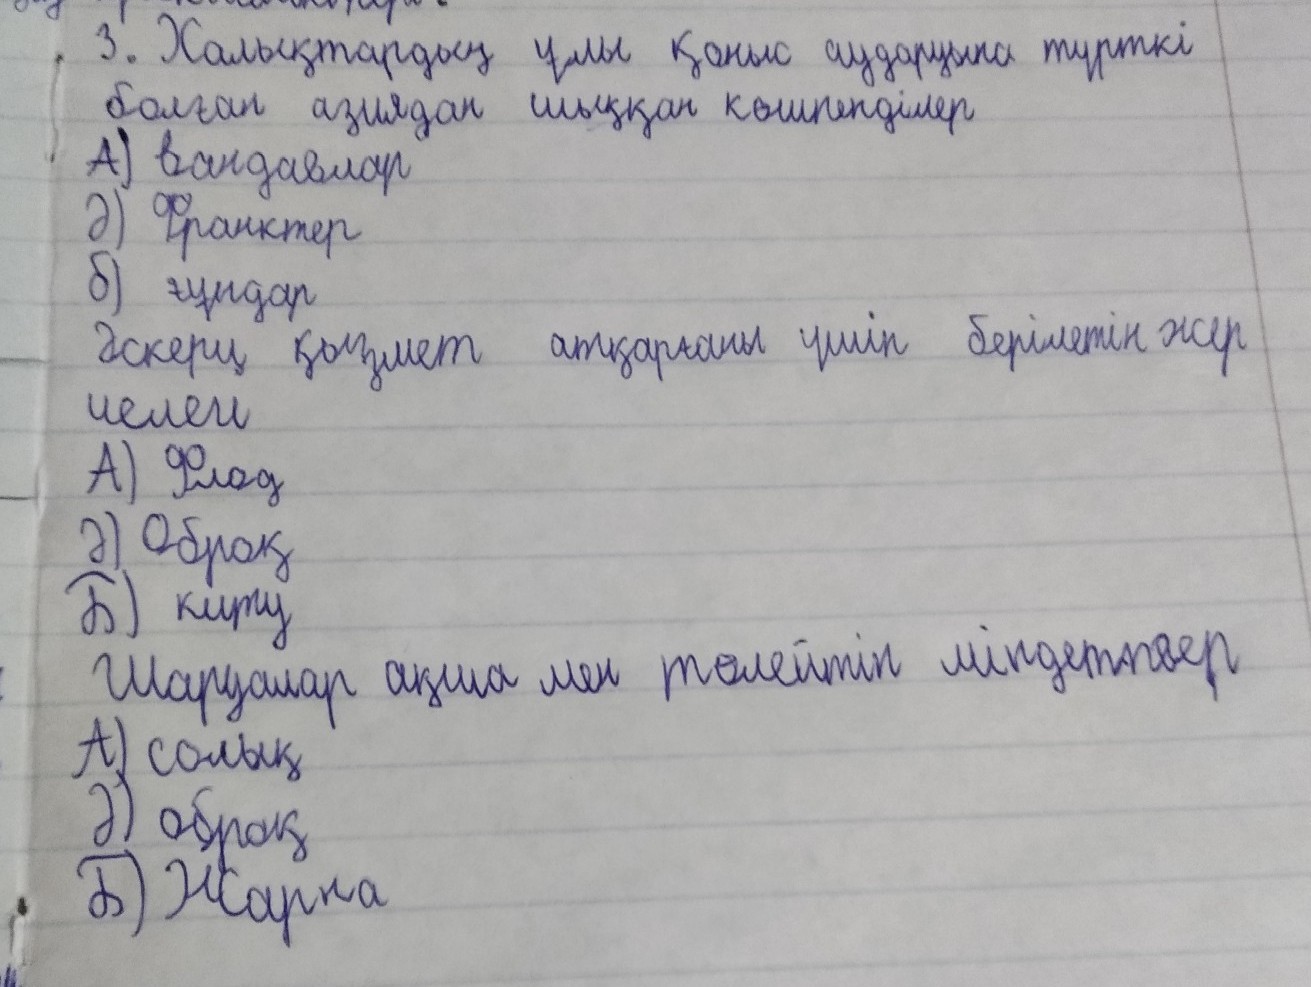 3. Халықтардың ұлы қоныс аударуына түрткі
болған азиядан шыққан көшпенділер
А) вандавлар
ә) Франктер
б) ғұндар
Әскери қызмет атқарғаны үшін берілетін жер
иелеги
А) Флод
ә) Оброқ
Б) купу
Шаруалар ақша мен төлейтін міндеттвер
А) солық
ә) оброқ
Б) Жарна